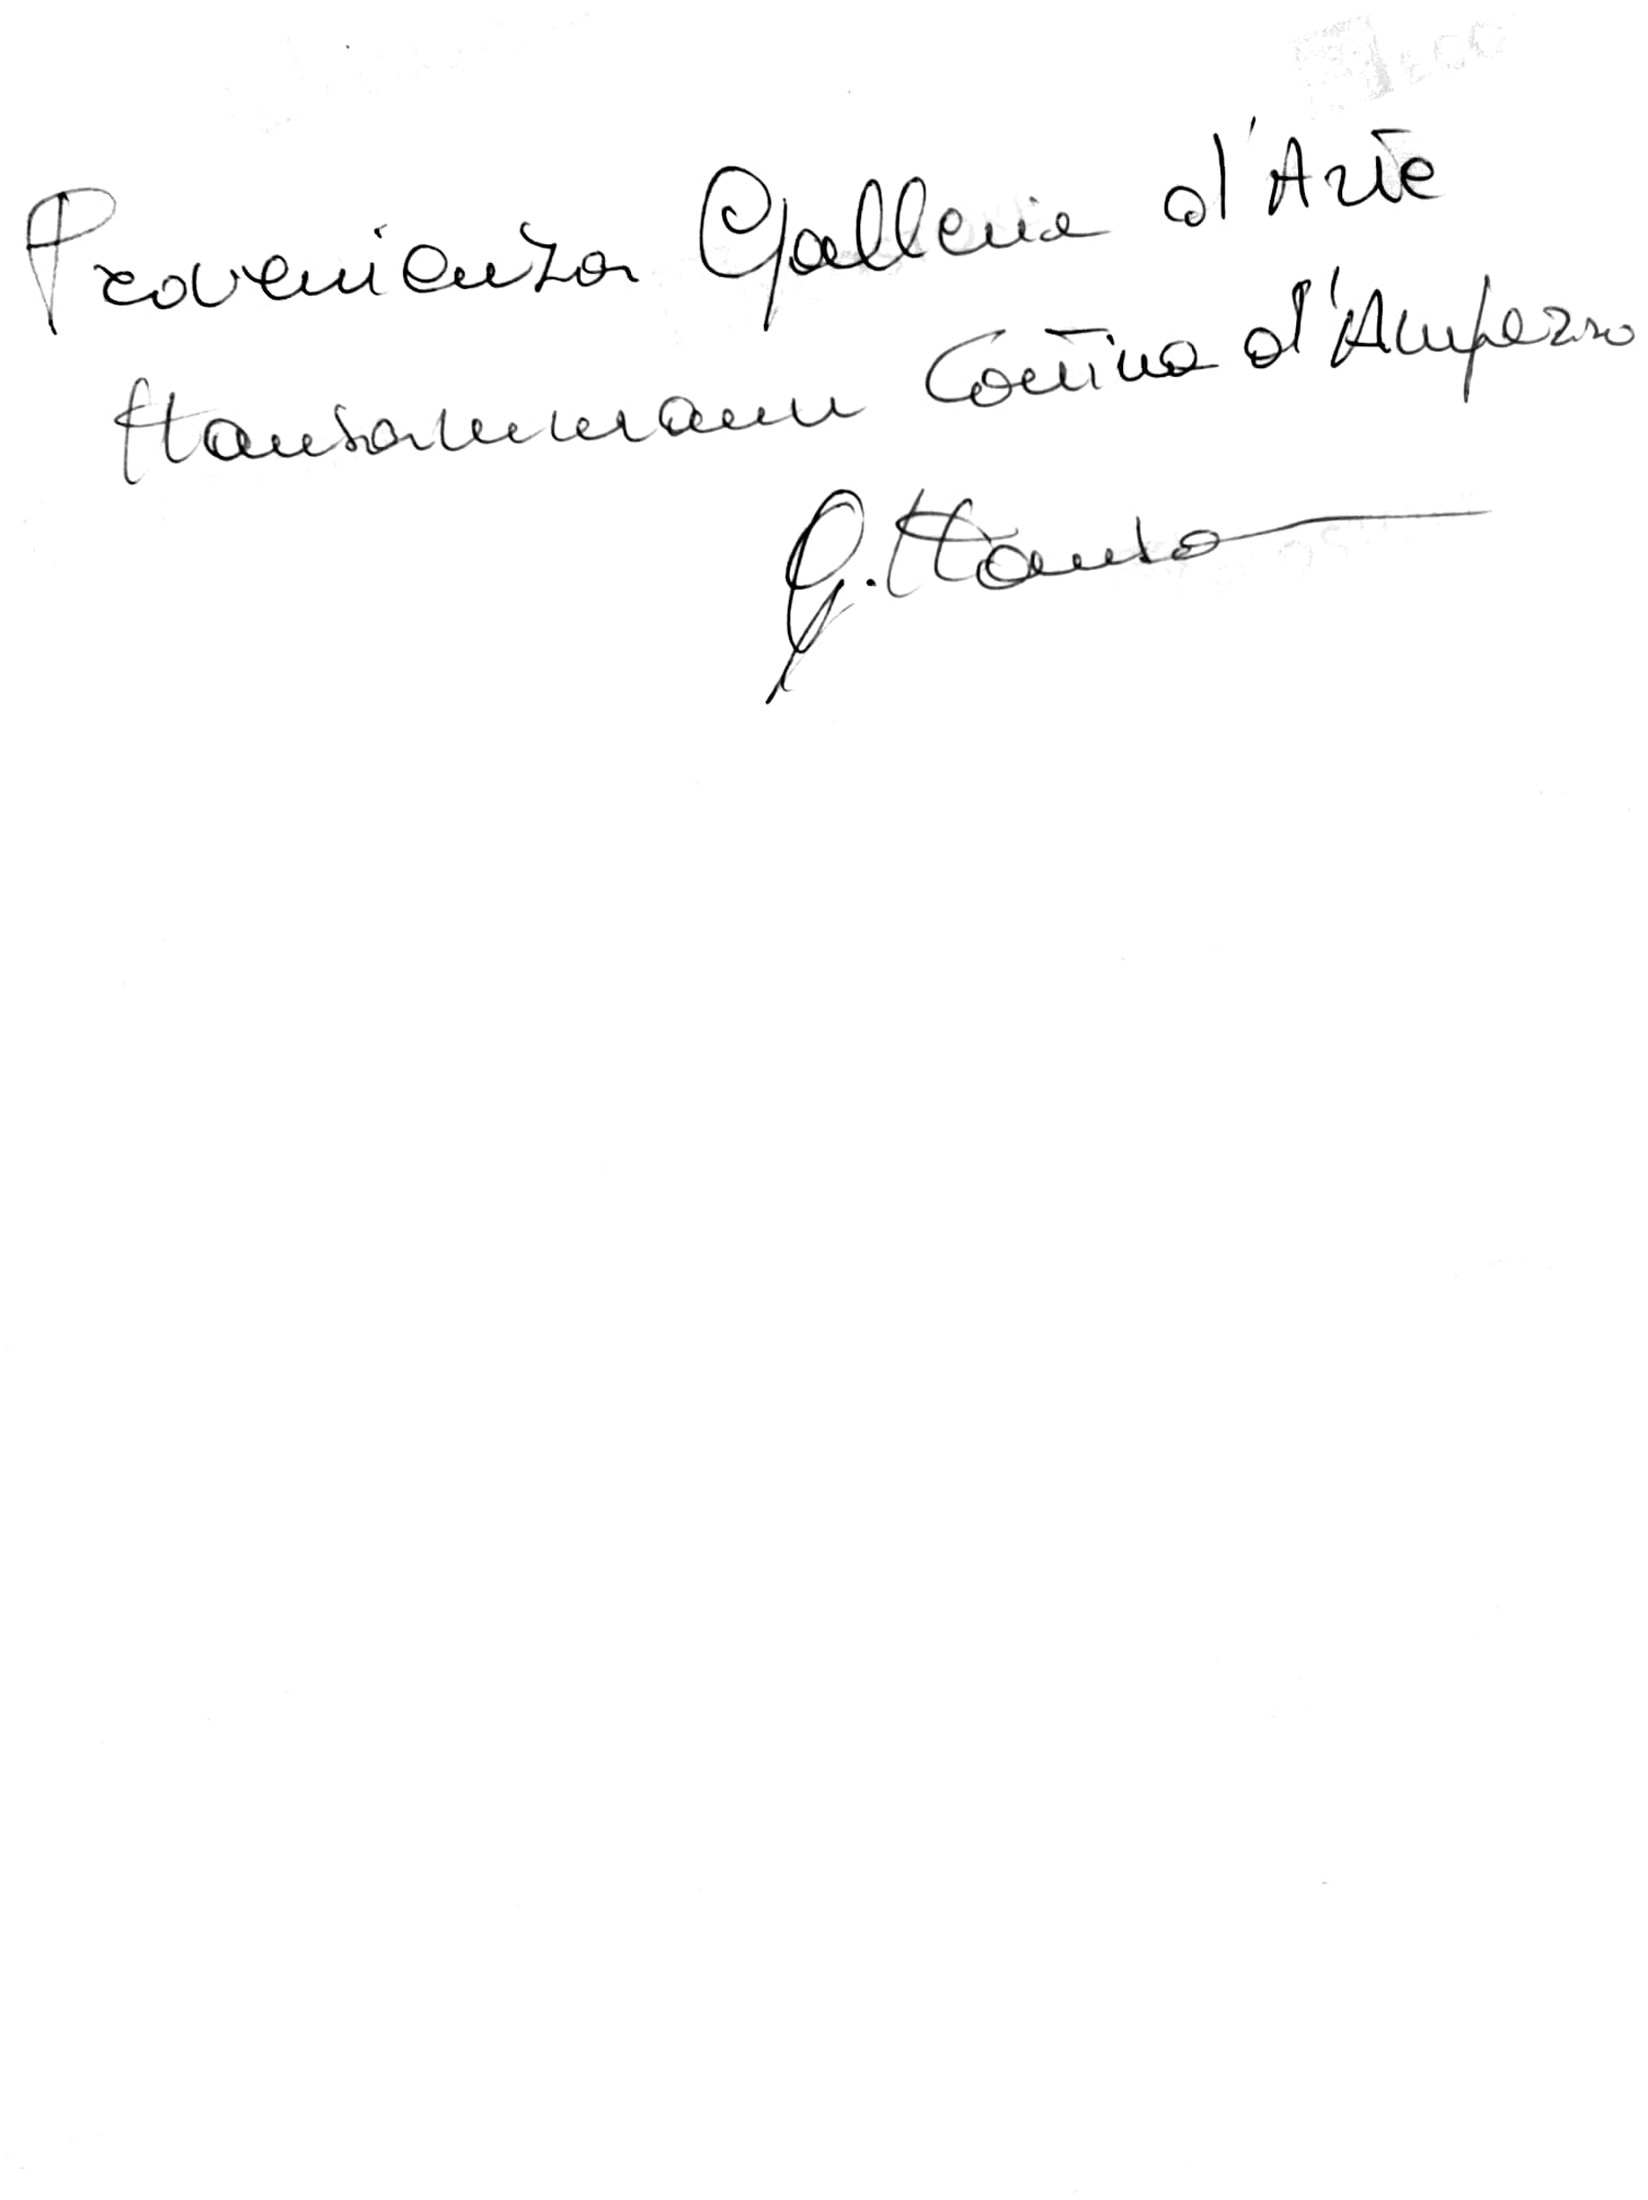 Provenienza Galleria d'Arte
Hausammann Cortina d'Ampezzo